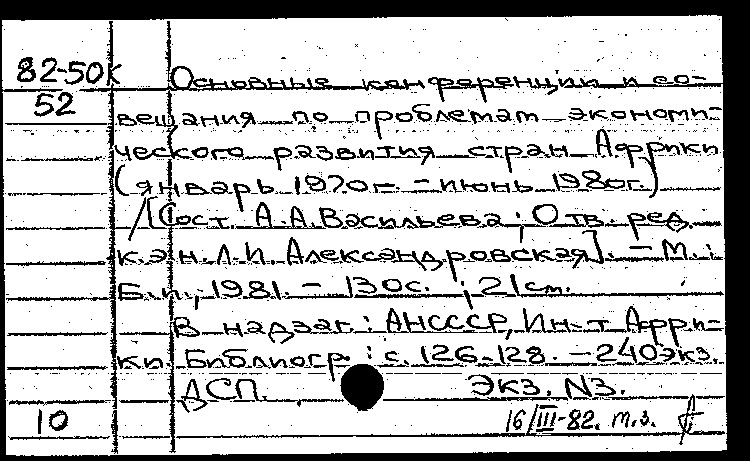 82-50к Основные конференции и со-
52 вещания по проблемам экономи-
ческого развития стран Африки
(январь 1970г. - июнь 1980г.)
/[Сост. А.А.Васильева; Отв. ред.
к.э.н. Л.И. Александровская]. - М.:
Б.и., 1981. - 130с. ; 21см.
В надзаг: АНСССР, Ин-т Афри-
ки. Библиогр.: с. 126-128. - 240экз.
ДСП. Экз. N3.
10 16/III-82. т.з.